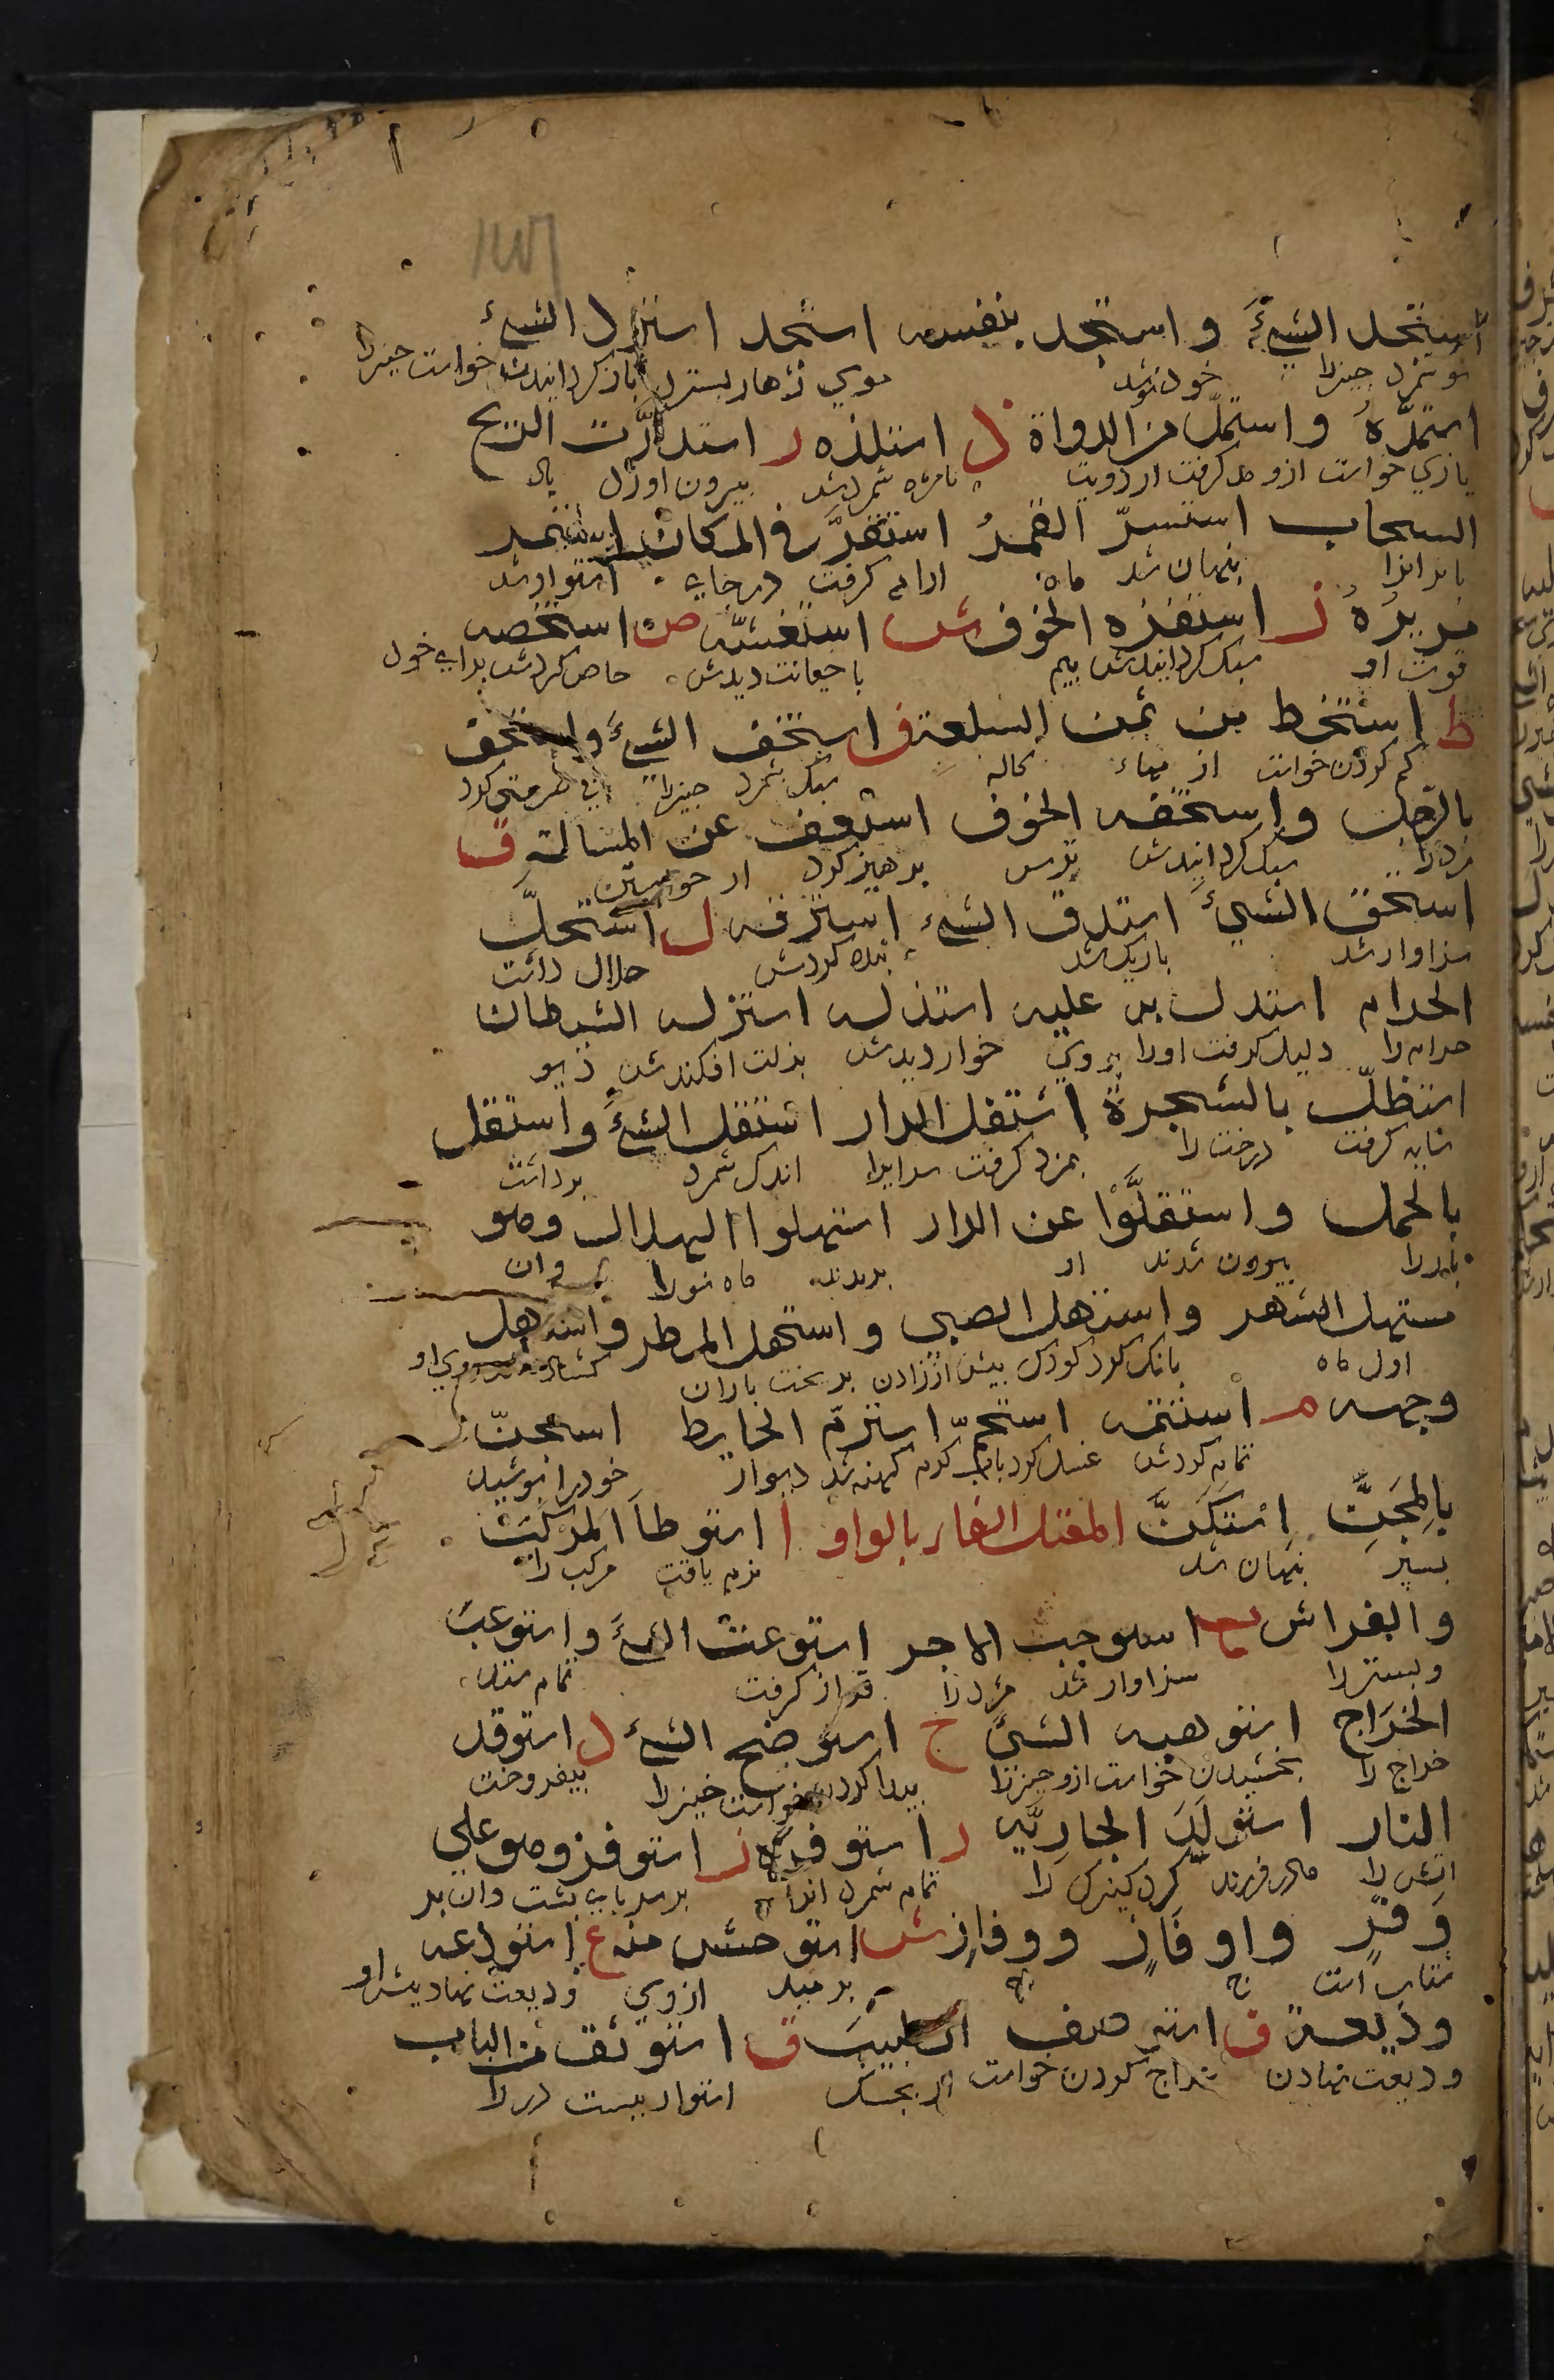 استجد الشيءَ واستجد بنفسه استحد استرد الشيء
نو شمرد چیزرا خود نو شد موی زهار بسترد باز کردانیدن خواست چیزرا
استمدّه واستمدّ من الدواة ذ استلذه ر استدرّت الريح
یاری خواست ازو مد کرفت از دویت بامزه شمردش بیرون اورد باد
السحاب استسرّ القمرُ استقرّ في المكان استمر
باندانرا پنهان شد ماه ارام کرفت در جای استوار شد
مريرهُ ز استفزه الخوف ش استغشّه ص استخصه
قوت او سبک کردانیدش بیم با خیانت دیدش خاص کردش برای خود
ط استحط من ثمن السلعة ف استخف الشيءَ واستخف
کم کردن خواست از بهاء کاله سبک شمرد چیزرا بی حرمتی کرد
بالرجل واستخفه الخوف استعف عن المسالة ق
مردرا سبک کردانیدش ترس پرهیز کرد از خواستن
استحق الشيءَ استدق الشيء استرقه ل استحلّ
سزاوار شد باریک شد بنده کردش حلال داشت
الحرام استدل به عليه استذله استزله الشيطان
حرام را دلیل کرفت اورا بروی خوار دیدش بزلت افکندش دیو
استظلّ بالشجرة استغل الدار استقل الشيءَ واستقل
سایه کرفت درخت را بمزد کرفت سرایرا اندک شمرد برداشت
بالحمل واستقلّوا عن الدار استهلوا الهلال وهو
باررا بیرون شدند از بدیدند ماه نورا وان
مستهل الشهر واستهل الصبي واستهل المطر واستهل
اول ماه بانک کرد کودک پیش از زادن بریخت باران کشاده شد روی او
وجهه م استتمه استحمّ استرمّ الحايط استجنّ
تمام کردش غسل کرد باب کرم کهنه شد دیوار خودرا بپوشید
بالمجنّ استكنَّ المعتل الفاء بالواو ا استوطأ المركب
بسپر پنهان شد نرم یافت مرکب را
والفراش ب استوجب الاجر استوعب الشيءَ واستوعب
وبستررا سزاوار شد مزدرا فراز کرفت تمام ستد
الخراج استوهبه الشيءَ ح استوضح الشيء د استوقد
خراج را بخشیدن خواست ازو چیزرا پیدا کردن خواست چیزرا بیفروخت
النار استولدَ الجارية ر استوفره ز استوفز وهو علي
اتش را مادر فرزند کرد کنیزک را تمام شمرد انرا بر سر پای نشست وان بر
وفزٍ واوفازٍ ووفازٍ ش استوحش منه ع استودعه
شتاب است ج ج برمید ازوی ودیعت نهاد پیش او
وديعة ف استوصف الطبيبَ ق استوثق من الباب
ودیعت نهادن علاج کردن خواست از بجشک استوار ببست دررا